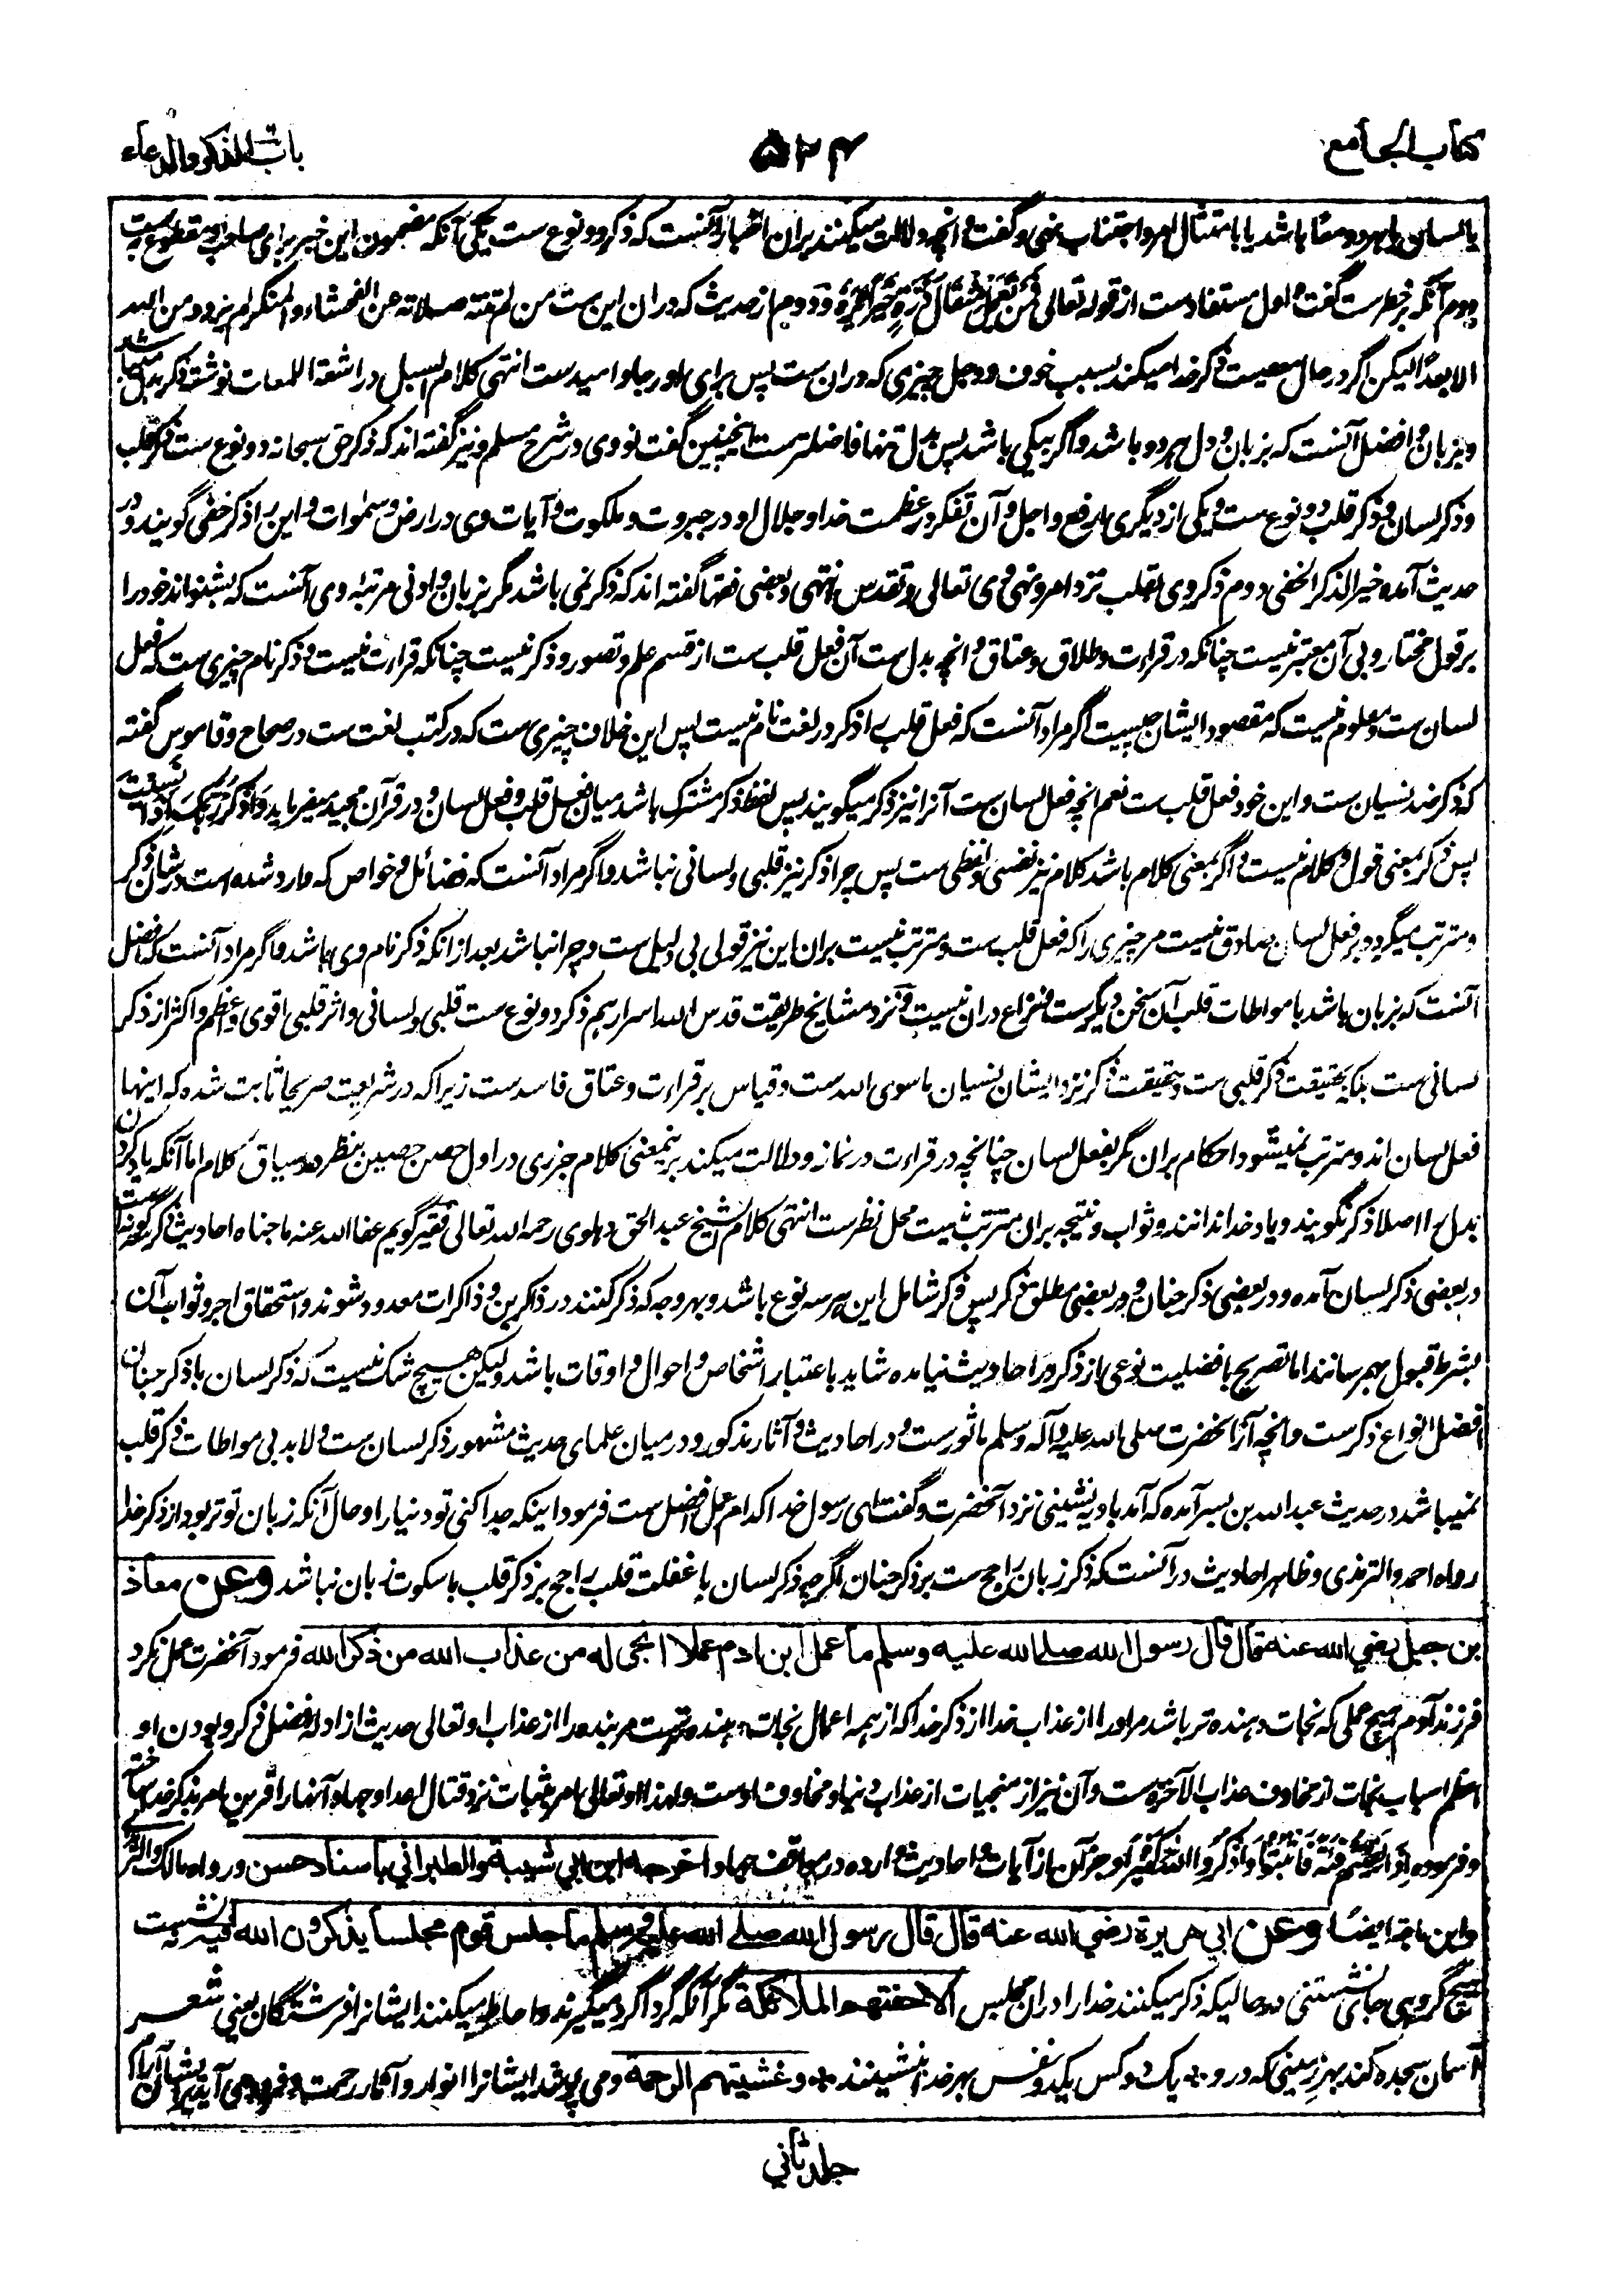 كتاب الجامع
۵۲۴
باب الذكر والدعاء
یا لسان یا بهر دو معًا باشد یا بامتثال امر و اجتناب نهی و گفت و انچه دلالت میکند بران اخبار آنست که ذکر دو نوع ست یکی آنکه مضمون این خبر برای صاحب او مقطوع به ست
دوم آنکه بر خطرست گفت و اول مستفادست از قوله تعالی فَمَن يَعْمَلْ مِثْقَالَ ذَرَّةٍ خَيْرًا يَرَهُ و دوم از حدیث که دران این ست من لم تنهه صلاته عن الفحشاء والمنكر لم يزدد من الله
الا بعدًا لیکن اگر در حال معصیت ذکر خدا میکند بسبب خوف و وجل چیزی که دران ست پس برای او رجا و امیدست انتهی کلام السبل در اشعة اللمعات نوشته ذکر بدل میباشد
و بزبان و افضل آنست که بزبان و دل هر دو باشد و اگر بیکی باشد پس بدل تنها فاضلترست اینچنین گفت نووی در شرح مسلم و نیز گفته اند که ذکر حق سبحانه دو نوع ست ذکر قلب
و ذکر لسان و ذکر قلب دو نوع ست و یکی از دیگری ارفع و اجل و آن تفکر در عظمت خدا و جلال او و در جبروت و ملکوت و آیات وی در ارض و سموات و این را ذکر خفی گویند و در
حدیث آمده خیر الذکر الخفی دوم ذکر وی بقلب نزد امر و نهی وی تعالی و تقدس انتهی و بعضی فقها گفته اند که ذکر نمی باشد مگر بزبان و ادنی مرتبه وی آنست که بشنواند خود را
بر قول مختار و بی آن معتبر نیست چنانکه در قراءت و طلاق و عتاق و انچه بدل ست آن فعل قلب ست از قسم علم و تصور و ذکر نیست چنانکه قراءت نیست و ذکر نام چیزی ست که فعل
لسان ست و معلوم نیست که مقصود ایشان چیست اگر مراد آنست که فعل قلب را ذکر در لغت نام نیست پس این خلاف چیزی ست که در کتب لغت ست در صحاح و قاموس گفته
که ذکر ضد نسیان ست و این خود فعل قلب ست نعم انچه فعل لسان ست آنرا نیز ذکر میگویند پس لفظ ذکر مشترک باشد میان فعل قلب و فعل لسان و در قرآن مجید میفرماید وَاذْكُر رَّبَّكَ إِذَا نَسِيتَ
پس ذکر بمعنی قول و کلام نیست و اگر بمعنی کلام باشد کلام نیز نفسی و لفظی ست پس چرا ذکر نیز قلبی و لسانی نباشد و اگر مراد آنست که فضائل و خواص که وارد شده است در شان ذکر
و مترتب میگردد بر فعل لسان صادق نیست مر چیزی را که فعل قلب ست و مترتب نیست بران این نیز قولی بی دلیل ست و چرا نباشد بعد ازانکه ذکر نام وی باشد و اگر مراد آنست که افضل
آنست که بزبان باشد با مواطات قلب آن سخن دیگرست و نزاع دران نیست و نزد مشایخ طریقت قدس الله اسرارهم ذکر دو نوع ست قلبی و لسانی و اثر قلبی اقوی و اعظم و اکثر از ذکر
لسانی ست بلکه بحقیقت ذکر قلبی ست و حقیقت ذکر نزد ایشان نسیان ما سوی الله ست و قیاس بر قراءت و عتاق فاسد ست زیرا که در شریعت صریحا ثابت شده که اینها
فعل لسان اند و مترتب نمیشود احکام بران مگر بفعل لسان چنانچه در قراءت در نماز و دلالت میکند برینمعنی کلام جزری در اول حصن حصین بنظر در سیاق کلام اما آنکه یاد کردن
بدل را اصلا ذکر نگویند و یاد خدا ندانند و ثواب و نتیجه بران مترتب نیست محل نظرست انتهی کلام الشیخ عبد الحق دهلوی رحمه الله تعالی فقیر گویم عفا الله عنه ما جناه احادیث ذکر بر سه گونه است
در بعضی ذکر لسان آمده و در بعضی ذکر جنان و در بعضی مطلق ذکر پس ذکر شامل این هر سه نوع باشد و بهر وجه که ذکر کنند در ذاکرین و ذاکرات معدود شوند و استحقاق اجر و ثواب آن
بشرط قبول بهم رسانند اما تصریح بافضلیت نوعی از ذکر در احادیث نیامده شاید باعتبار اشخاص و احوال و اوقات باشد و لیکن هیچ شک نیست که ذکر لسان با ذکر جنان
افضل انواع ذکرست و انچه از آنحضرت صلی الله علیه و آله و سلم ماثورست و در احادیث و آثار مذکور و در میان علمای حدیث مشهور ذکر لسان ست و لابد بی مواطات ذکر قلب
نمیباشد در حدیث عبد الله بن بسر آمده که آمد بادیه نشینی نزد آنحضرت و گفت ای رسول خدا کدام عمل افضل ست فرمود اینکه جدا کنی تو دنیا را و حال آنکه زبان تو تر بود از ذکر خدا
رواه احمد والترمذی و ظاهر احادیث در آنست که ذکر زبان راجح ست بر ذکر جنان مگر چه ذکر لسان با غفلت قلب راجح بر ذکر قلب با سکوت زبان نباشد وعن معاذ
بن جبل رضي الله عنه قال قال رسول الله صلى الله عليه وسلم ما عمل ابن ادم عملا انجى له من عذاب الله من ذكر الله فرمود آنحضرت عمل نکرد
فرزند آدم هیچ عملی که نجات دهنده تر باشد مر او را از عذاب خدا از ذکر خدا که از همه اعمال نجات دهنده ترست مر بنده را از عذاب او تعالی حدیث از ادله فضل ذکر و بودن او
اعظم اسباب نجات از مخاوف عذاب الآخرة ست و آن نیز از منجیات از عذاب دنیا و مخاوف اوست و لهذا او تعالی امر بثبات نزد قتال اعدا و جهاد آنها را قرین امر بذکر خدا ساخته
و فرموده إِذَا لَقِيتُمْ فِئَةً فَاثْبُتُوا وَاذْكُرُوا اللهَ كَثِيرًا و جز آن از آیات و احادیث وارده در مواقف جهاد اخرجه ابن ابي شيبة والطبراني باسناد حسن و رواه مالک والترمذی
وابن ماجة ایضًا وعن ابي هريرة رضي الله عنه قال قال رسول الله صلى الله عليه وسلم ما جلس قوم مجلسا يذكرون الله فيه نه نشست
هیچ گروهی جای نشستنی در حالیکه ذکر میکنند خدا را دران مجلس الا حفتهم الملائكة مگر آنکه گرداگرد میگیرند و احاطه میکنند ایشانرا فرشتگان یعنی شعر
آسمان سجده کند بهر زمینی که درو ٭ یک دو کس یکدو نفس بهر خدا بنشینند ٭ وغشيتهم الرحمة و می پوشد ایشانرا انوار و آثار رحمت و فرود می آید بر ایشان آرام
جلد ثاني